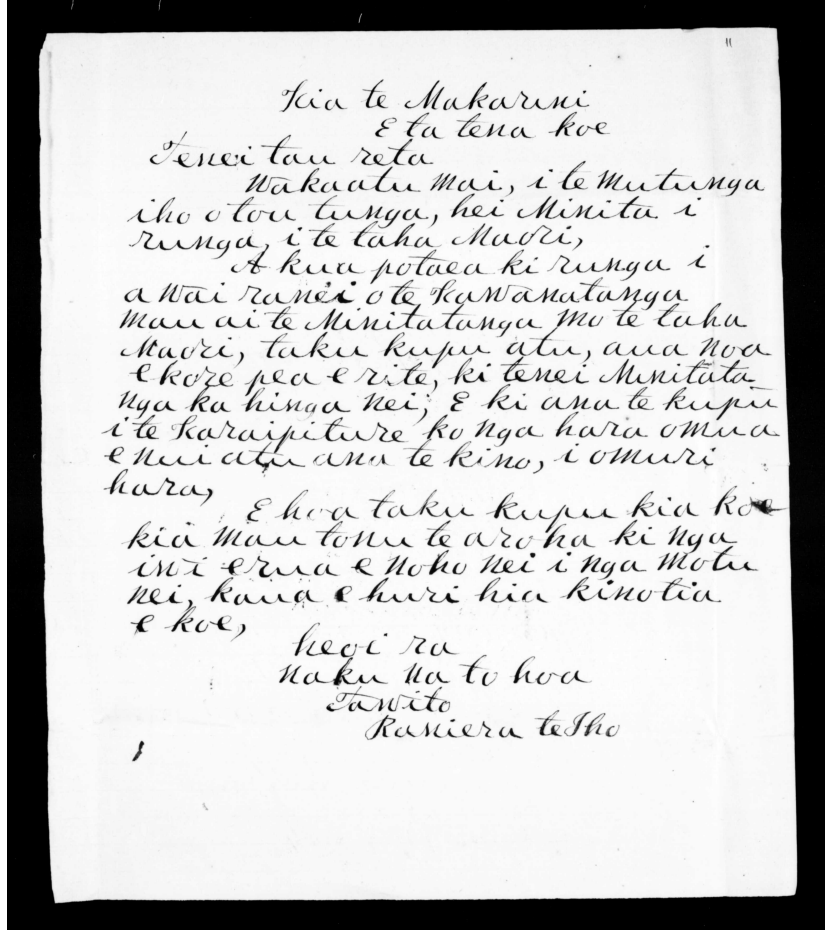 11
Kia te Makarini
E ta tena koe
Tenei tau reta
Wakaatu mai, i te mutunga
iho o tou tunga, hei Minita i
runga, i te taha Maori,
A kua potaea ki runga i
a wai ranei o te Kawanatanga
mau ai te Minitatanga mo te taha
Maori, taku kupu atu, aua noa
e kore pea e rite, ki tenei Minitata
nga ka hinga nei; E ki ana te kupu
i te Karaipiture ko nga hara omua
e nui atu ana te kino, i omuri
hara,
E hoa taku kupu kia koe
kia mau tonu te aroha ki nga
iwi erua e noho nei i nga motu
nei, kaua e huri hia kinotia
e koe,
heoi ra
naku na to hoa
Tawito
Raniera te Iho